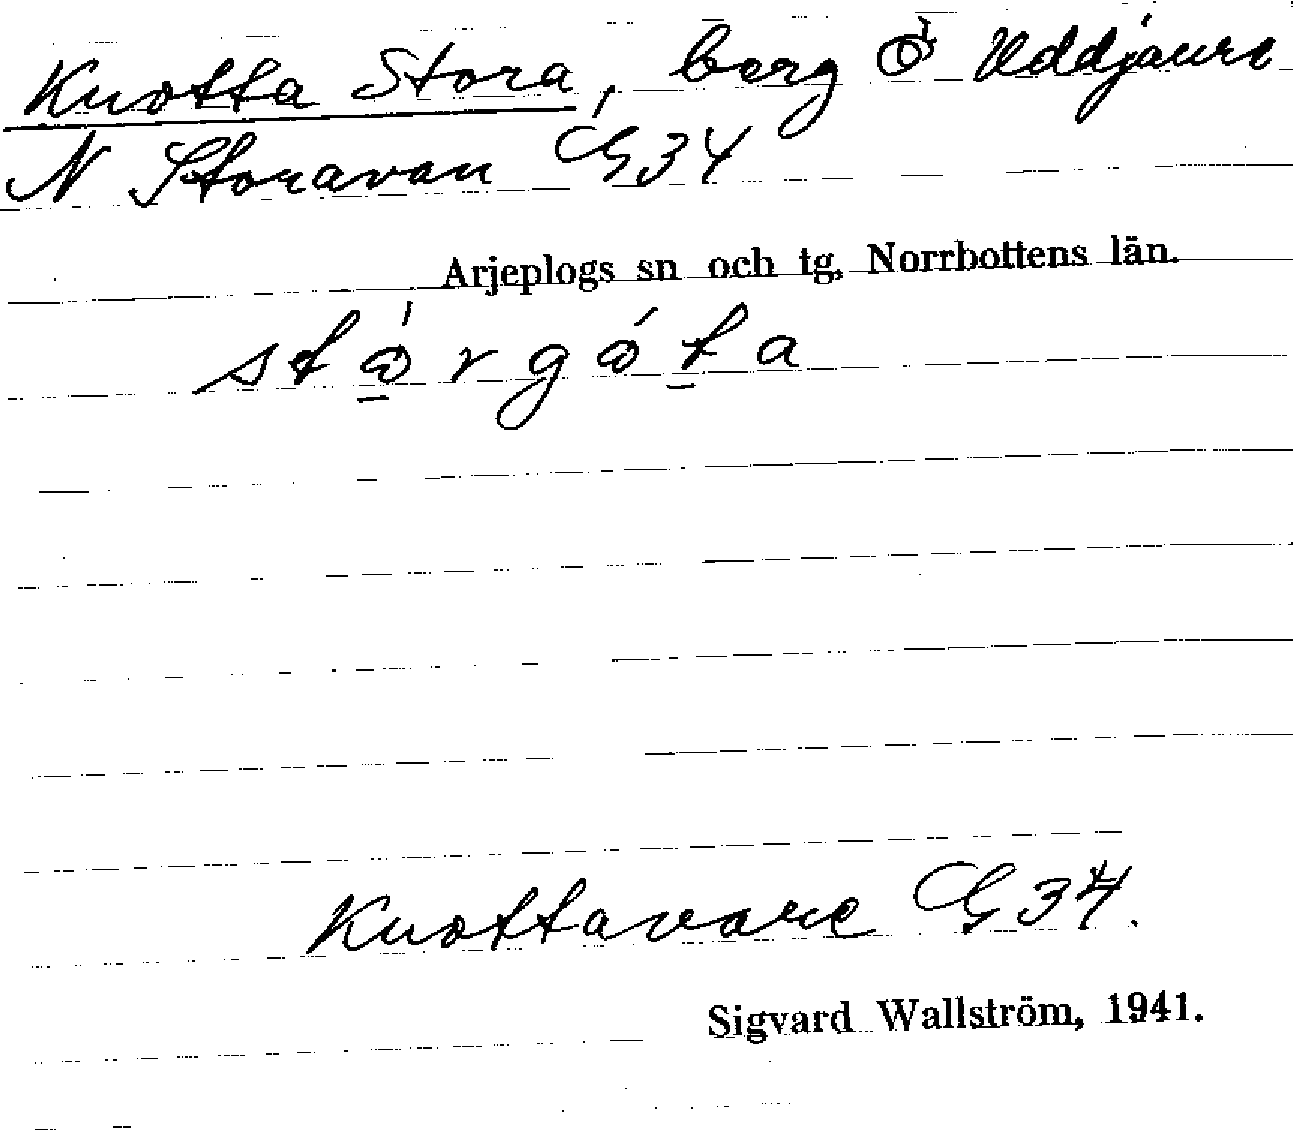 Kuotta Stora, berg Ö Uddjaure
N Storavan G34
Arjeplogs sn och tg, Norrbottens län.
Kuottavare G34.
Sigvard Wallström, 1941.